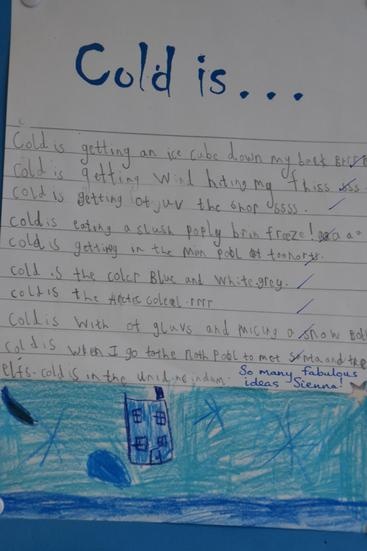 Cold is...
Cold is getting an ice cube down my back
Cold is getting wind hiting my
cold is getting ot juv the shop ssss.
cold is eating a slush poply brin freeze!
cold is getting in the
cold is the coler Blue and White.grey.
cold is the Arctic
Cold is with ot gluvs and micing a snow
Cold is when I go to the Noth Pobl to met and the
elfs. cold is in the
So many fabulous
ideas Sienna!